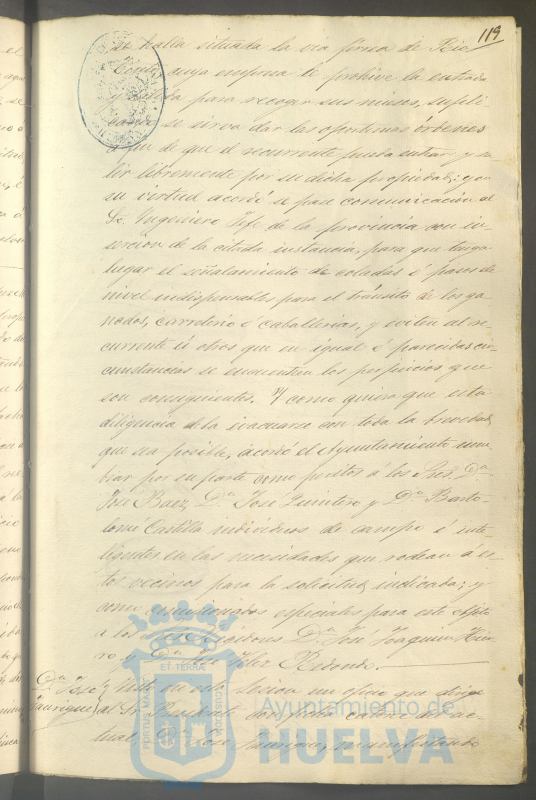 119
se halla situada la via ferrea de Rio
Tinto cuya empresa le prohive la entrada
y salida para recoger sus mieses, supli
cando se sirva dar las oportunas órdenes
a fin de que el recurrente pueda entrar y sa
lir libremente por su dicha propiedad; y en
su virtud acordó se pase comunicación al
Sr. Ingeniero Jefe de la provincia con in
serción de la citada instancia, para que tenga
lugar el señalamiento de coladas ó pasos de
nivel indispensables para el tránsito de los ga
nados, carreterio ó caballerias, y eviten al re
currente ú otros que en igual ó parecidas cir
cunstancias se encuentren los perjuicios que
son consiguientes. Y como quiera que esta
diligencia debe evacuarse con toda la brevedad
que sea posible, acordó el Ayuntamiento nom
brar por su parte como peritos á los Sres. Dn.
José Baez, Dn. José Quintero y Dn. Barto
lomé Castilla individuos de campo é inte
ligentes en las necesidades que rodean a es
tos vecinos para la solicitud indicada; y
como comisionados especiales para este efecto
a los Sres. Regidores Dn. José Joaquin
ro y Dn. José Redondo.
Dn. José Visto en esta sesion un oficio que dirige
al Sr. Presidente con fecha catorce del ac
tual, Dn. José manifestando
PORTUS MARIS
ET TERRÆ
CUSTODIA
Ayuntamiento de
HUELVA